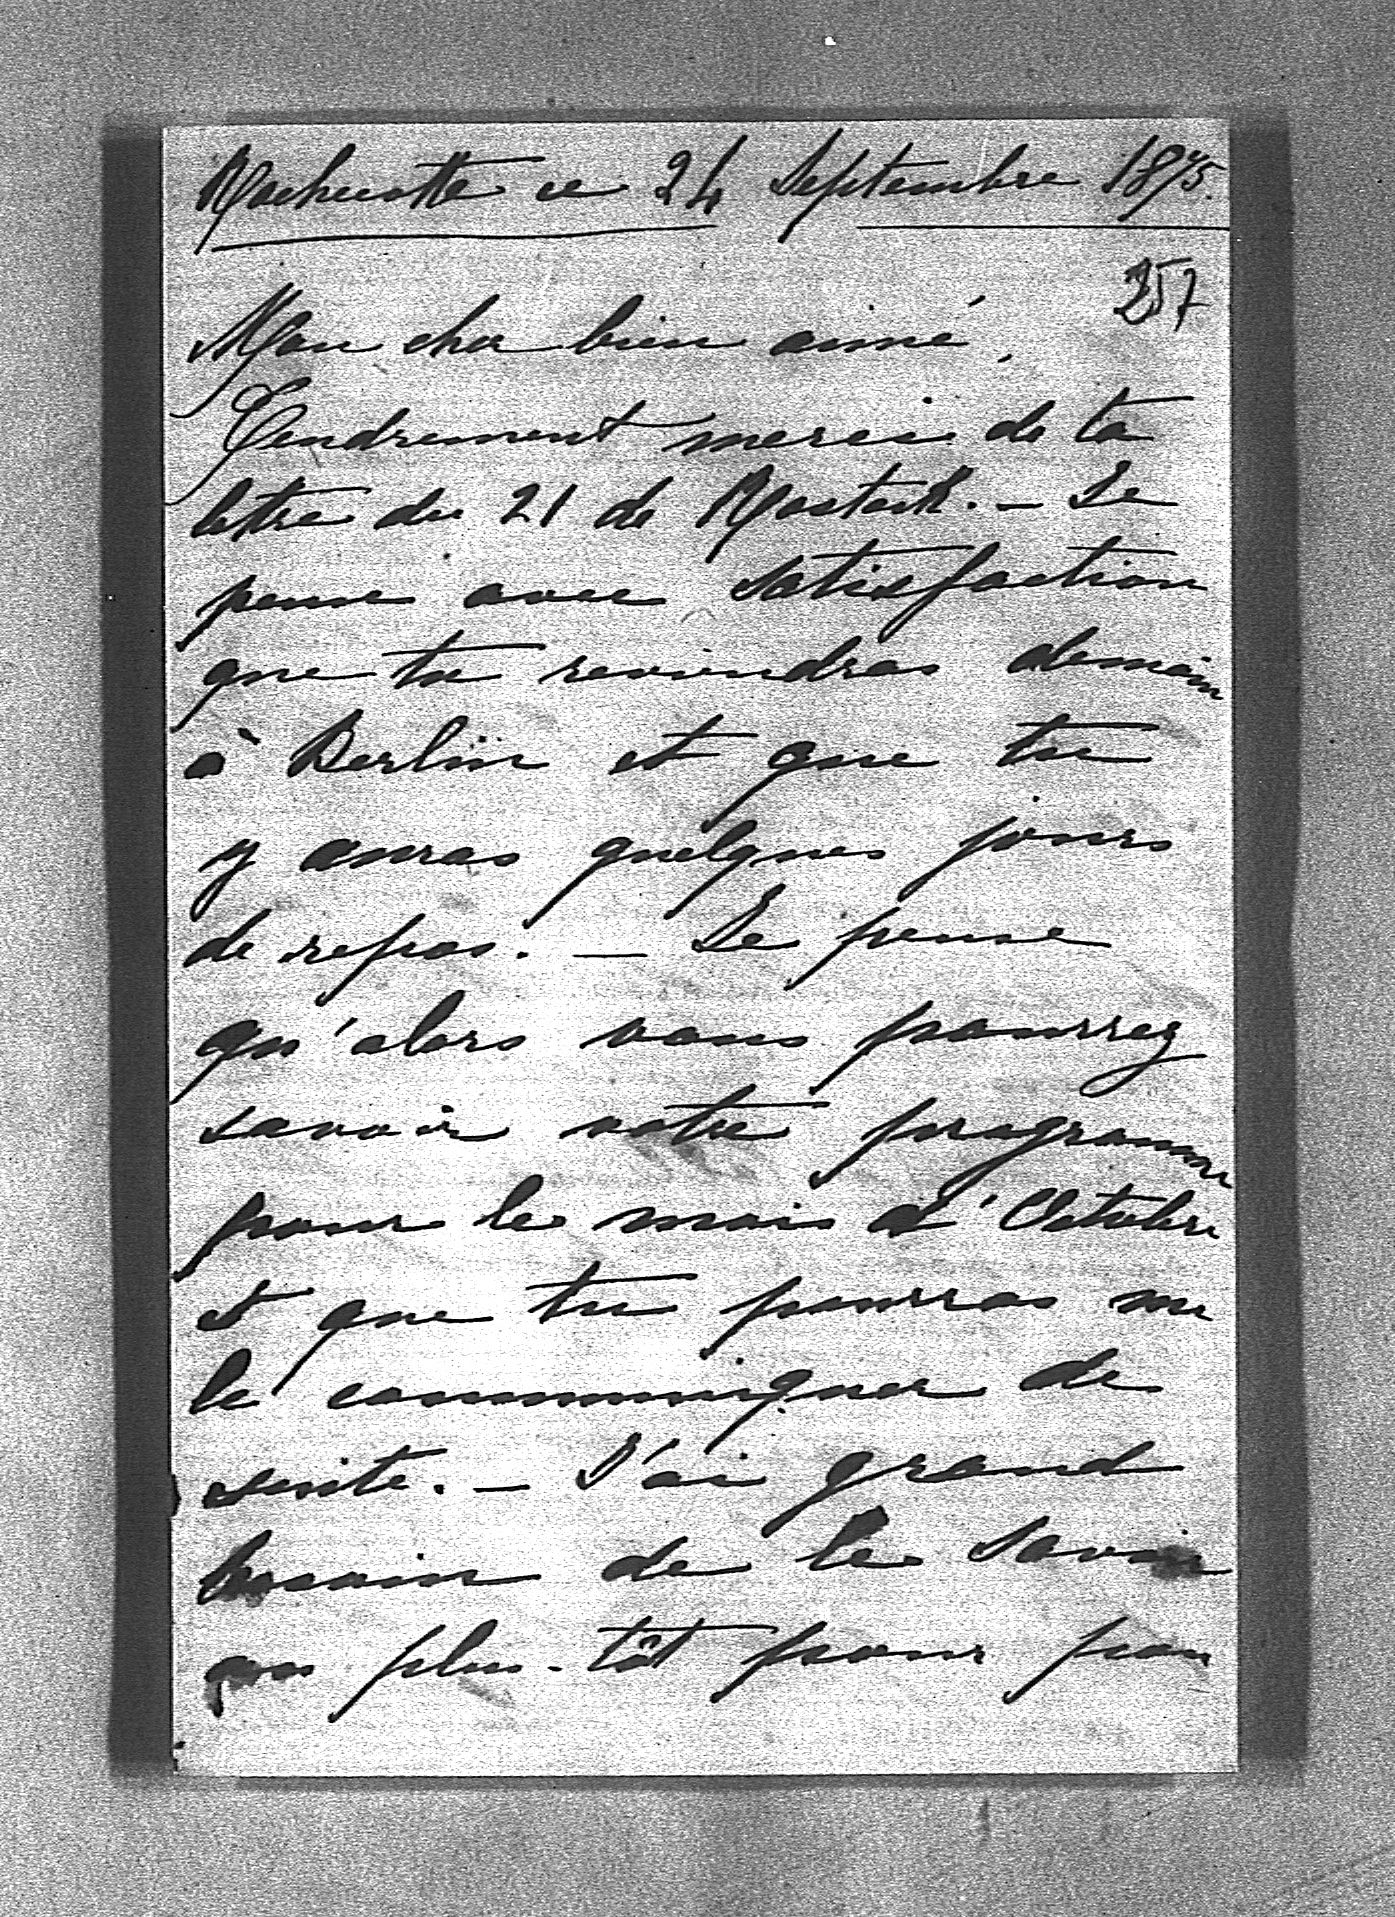 Rochecotte ce 24 Septembre 1875.
257
Mon cher bien aimé,
Tendrement merci de ta
lettre du 21 de Rostock. — Je
pense avec satisfaction
que tu reviendras demain
à Berlin et que tu
y auras quelques jours
de repos. — Je pense
qu'alors vous pourrez
savoir votre programme
pour le mois d'Octobre
et que tu pourras me
le communiquer de
suite. — J'ai grand
besoin de le savoir
au plus-tôt pour pou